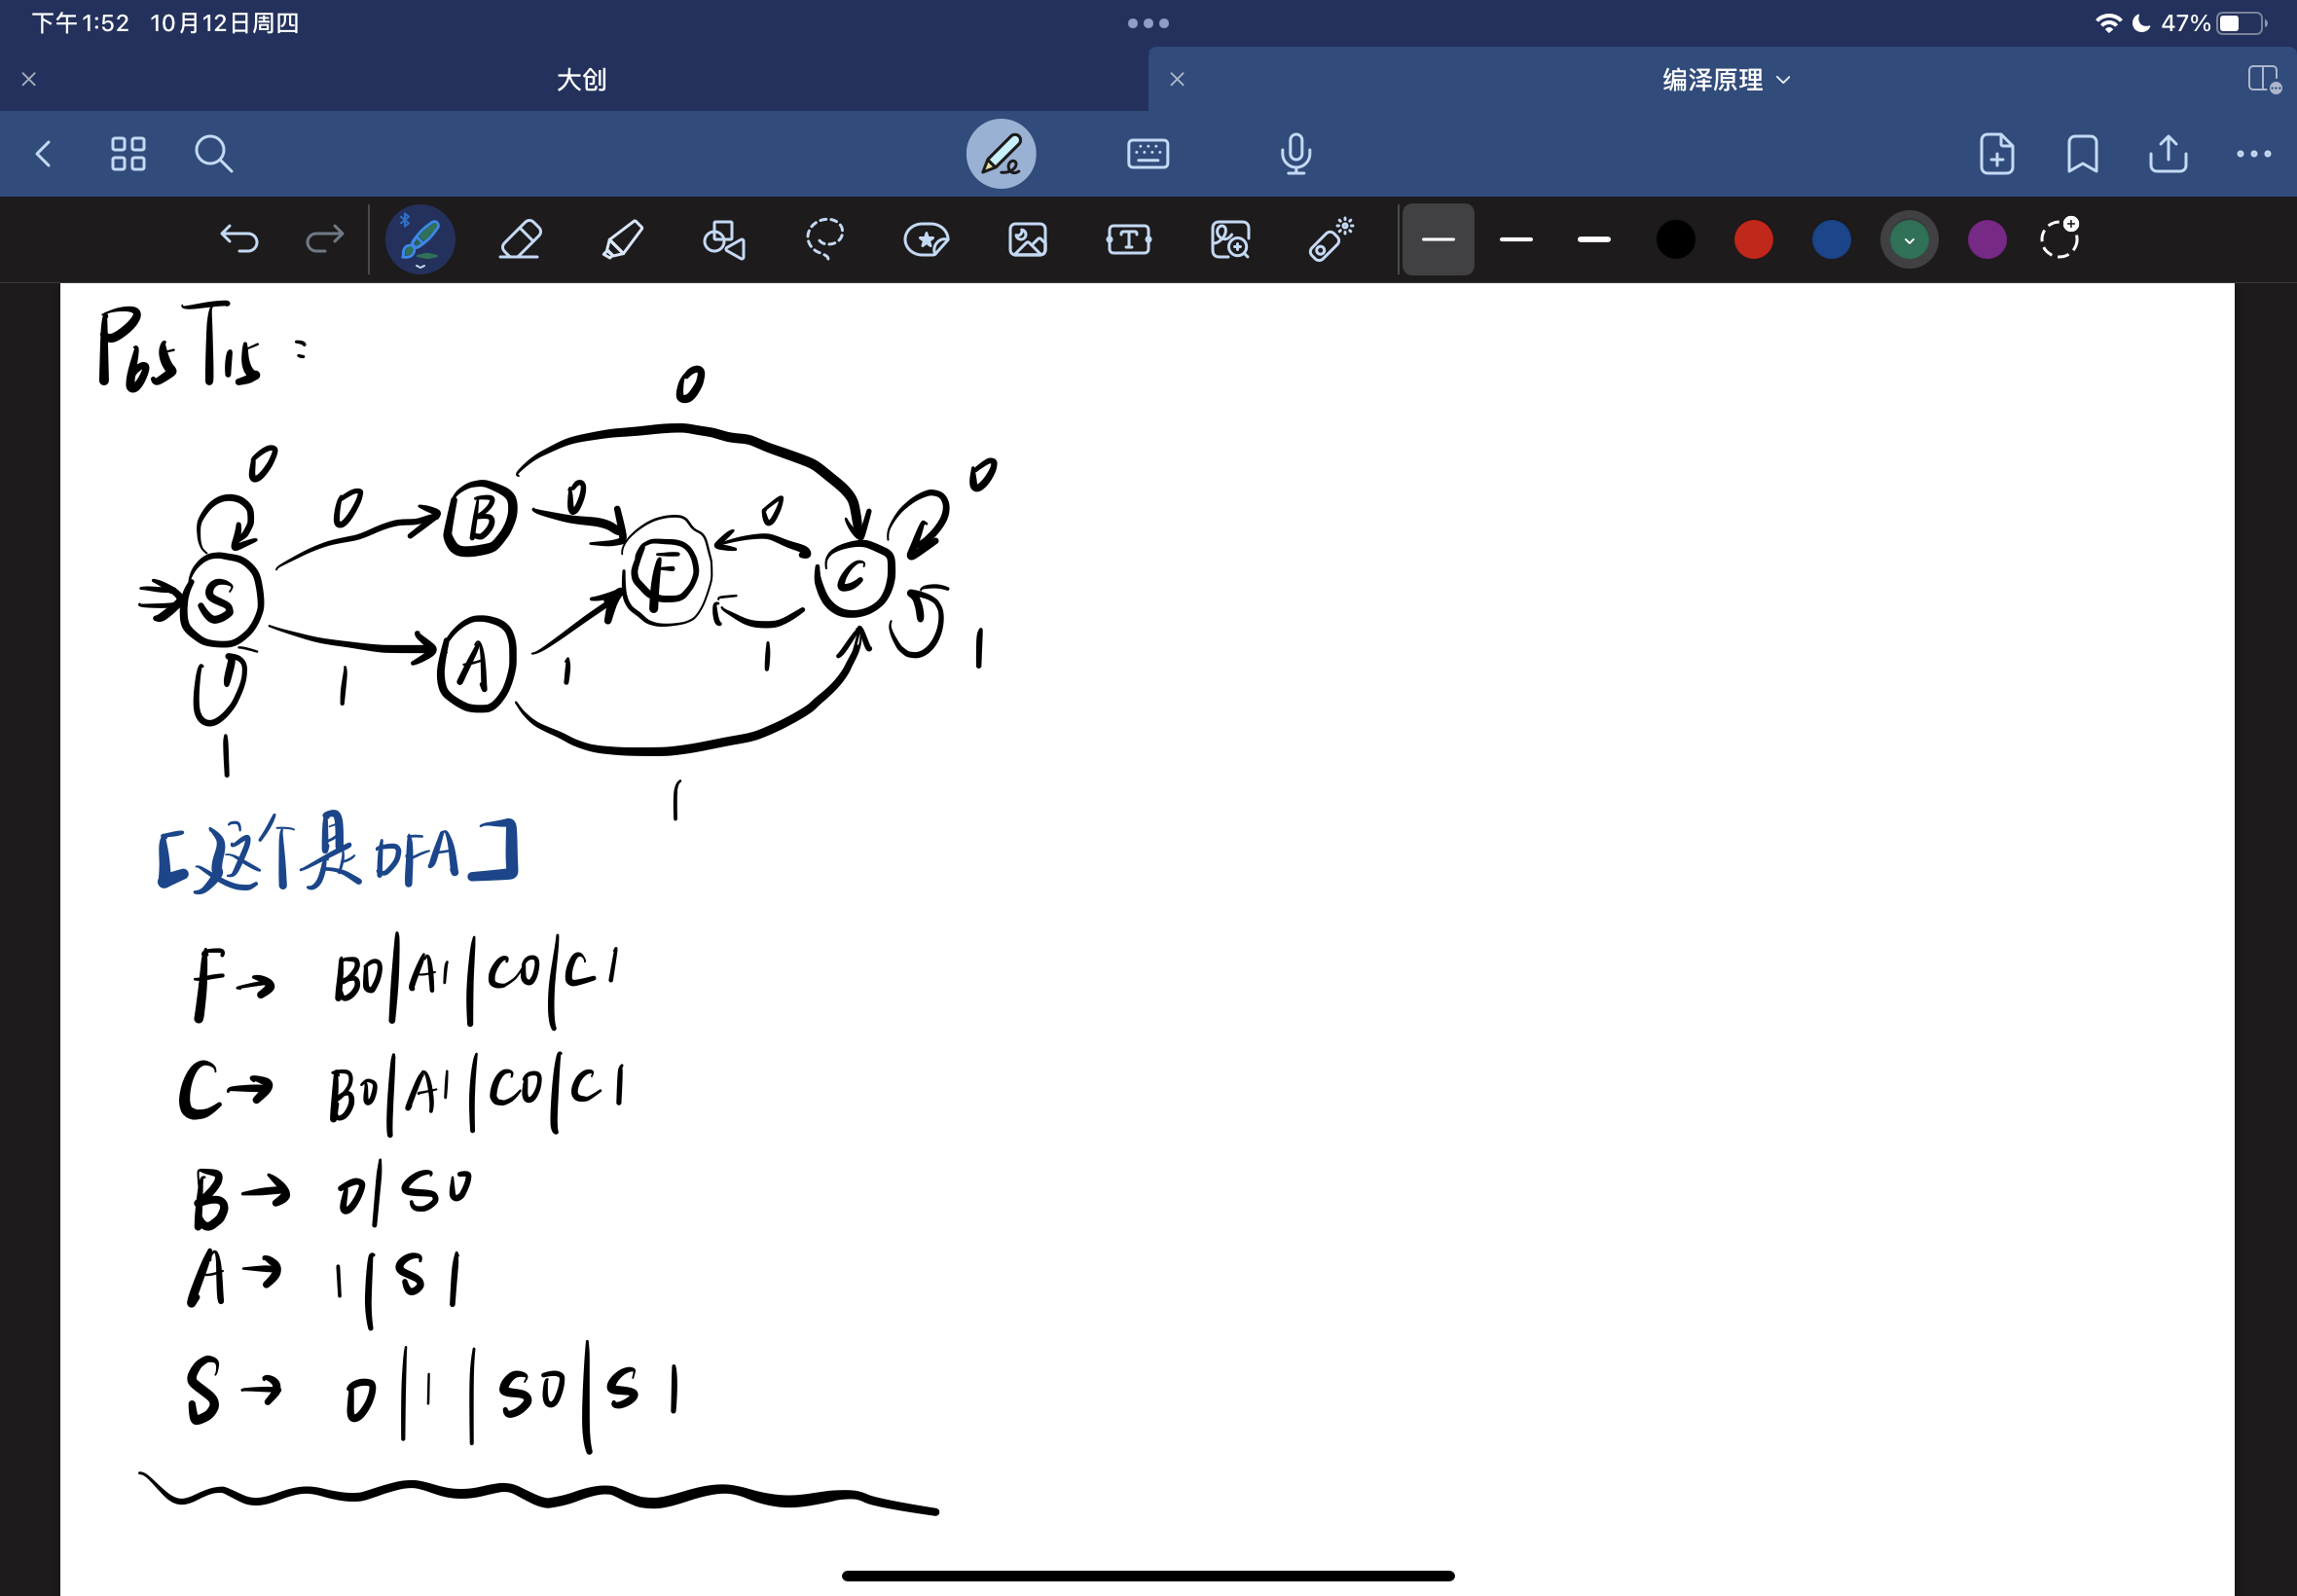 下午1:52 10月12日周四
47%
大创
编泽原理
P65 T15:
0
0
0
0
0
0
B
S
F
C
A
1
1
1
1
1
1
[这个是DFA]
F→ B0|A1|C0|C1
C→ B0|A1|C0|C1
B→ 0|S0
A→ 1|S1
S→ 0|1|S0|S1